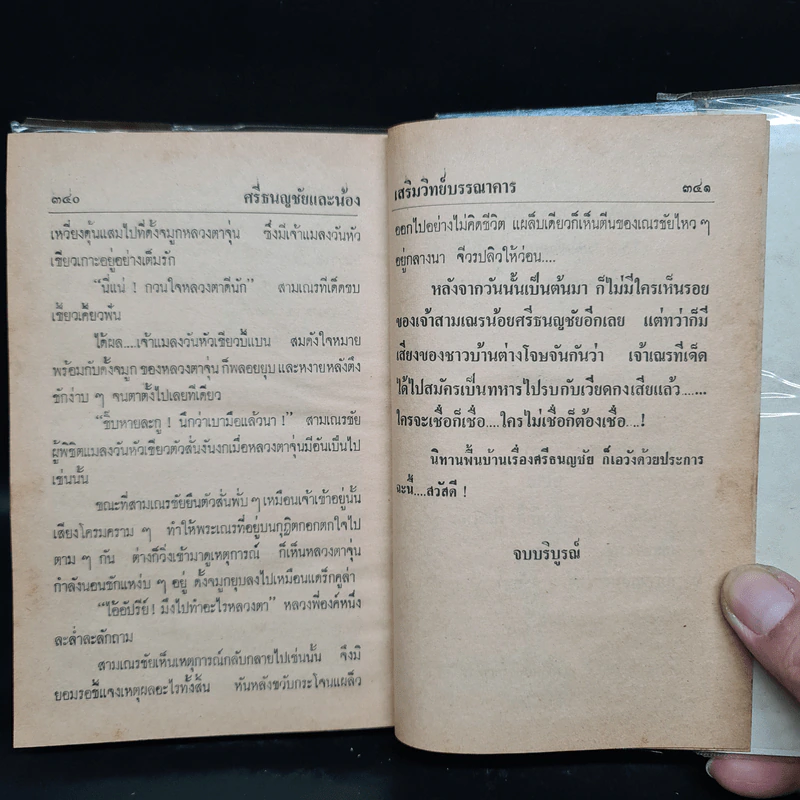 ๓๔๐ ศรีธนญชัยและน้อง
เหวี่ยงตุ้นแสมไปที่ดั้งจมูกหลวงตาจุ่น ซึ่งมีเจ้าแมลงวันหัว
เขียวเกาะอยู่อย่างเต็มรัก
“นี่แน่ ! กวนใจหลวงตาดีนัก” สามเณรที่เด็ดขบ
เขี้ยวเคี้ยวฟัน
ได้ผล....เจ้าแมลงวันหัวเขียวบี้แบน สมดังใจหมาย
พร้อมกับดั้งจมูก ของหลวงตาจุ่น ก็พลอยยุบ และหงายหลังตึง
ชักง่าบ ๆ จนตาตั้งไปเลยทีเดียว
“ชิบหายละกู ! นึกว่าเบามือแล้วนา !” สามเณรชัย
ผู้พิชิตแมลงวันหัวเขียวตัวสั่นงันงกเมื่อหลวงตาจุ่นมีอันเป็นไป
เช่นนั้น
ขณะที่สามเณรชัยยืนตัวสั่นพั่บ ๆ เหมือนเจ้าเข้าอยู่นั้น
เสียงโครมคราม ๆ ทำให้พระเณรที่อยู่บนกุฏิตกอกตกใจไป
ตาม ๆ กัน ต่างก็วิ่งเข้ามาดูเหตุการณ์ ก็เห็นหลวงตาจุ่น
กำลังนอนชักแหง่บ ๆ อยู่ ดั้งจมูกยุบลงไปเหมือนแด๊รกคูล่า
“ไอ้อัปรีย์ ! มึงไปทำอะไรหลวงตา” หลวงพี่องค์หนึ่ง
ละล่ำละลักถาม
สามเณรชัยเห็นเหตุการณ์กลับกลายไปเช่นนั้น จึงมิ
ยอมรอชี้แจงเหตุผลอะไรทั้งสิ้น หันหลังขวับกระโจนแผล็ว
เสริมวิทย์บรรณาคาร ๓๔๑
ออกไปอย่างไม่คิดชีวิต แผล็บเดียวก็เห็นตีนของเณรชัยไหว ๆ
อยู่กลางนา จีวรปลิวให้ว่อน....
หลังจากวันนั้นเป็นต้นมา ก็ไม่มีใครเห็นรอย
ของเจ้าสามเณรน้อยศรีธนญชัยอีกเลย แต่ทว่าก็มี
เสียงของชาวบ้านต่างโจษจันกันว่า เจ้าเณรที่เด็ด
ได้ไปสมัครเป็นทหารไปรบกับเวียดกงเสียแล้ว......
ใครจะเชื่อก็เชื่อ....ใครไม่เชื่อก็ต้องเชื่อ....!
นิทานพื้นบ้านเรื่องศรีธนญชัย ก็เอวังด้วยประการ
ฉะนี้....สวัสดี !
จบบริบูรณ์